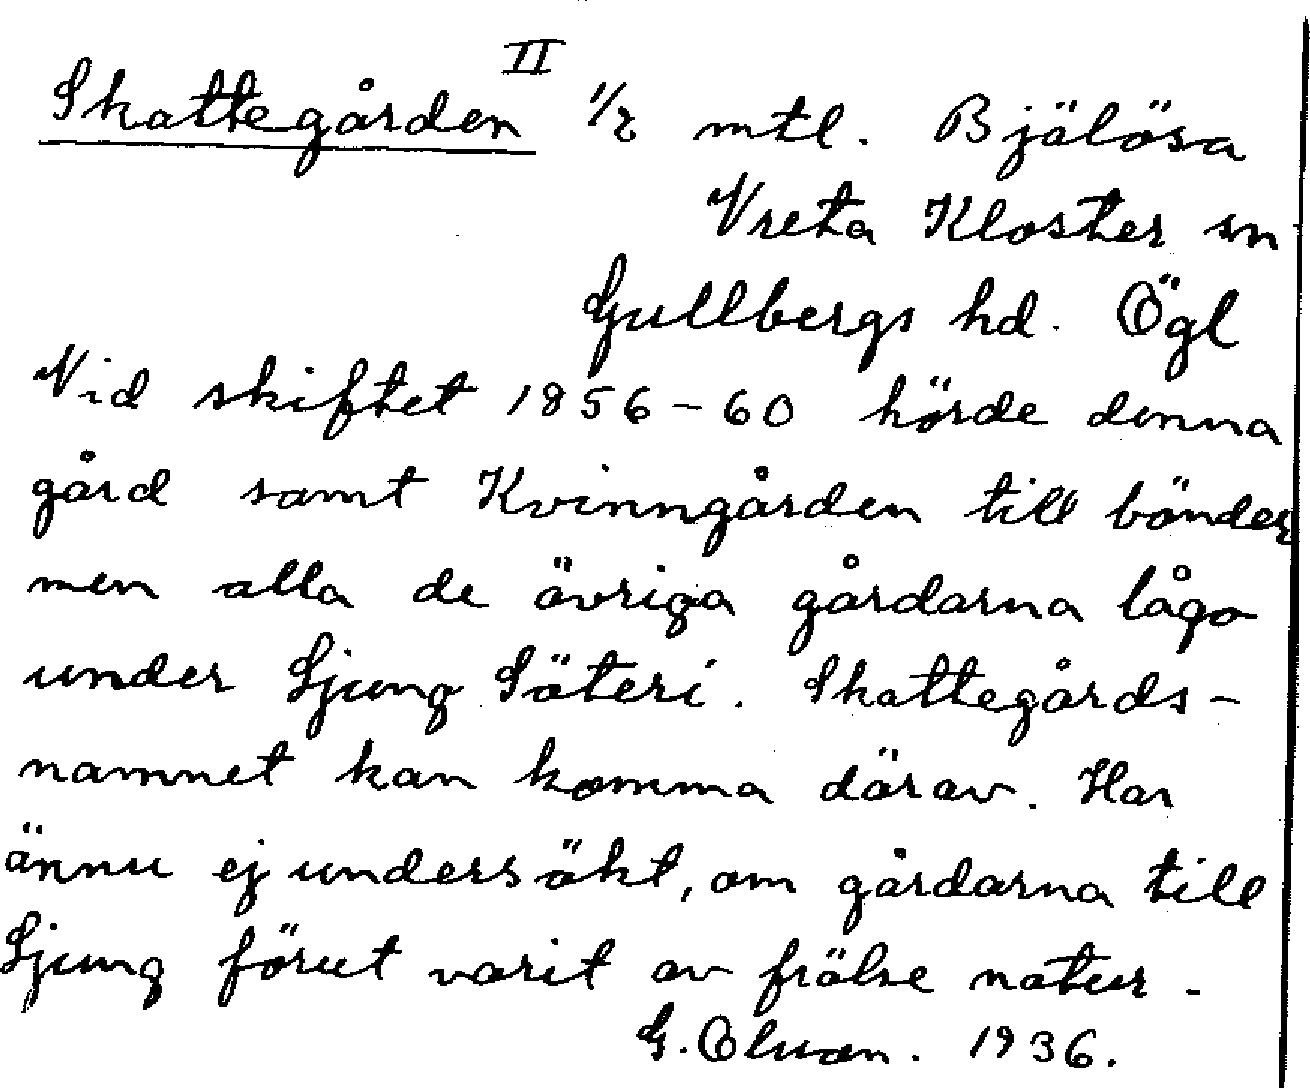 Skattegården II 1/2 mtl. Bjälösa
Vreta Kloster sn
Gullbergs hd. Ögl
Vid skiftet 1856-60 hörde denna
gård samt Kvinngården till bönder
men alla de övriga gårdarna lågo
under Ljung Säteri. Skattegårds-
namnet kan komma därav. Har
ännu ej undersökt, om gårdarna till
Ljung förut varit av frälse natur.
G. 1936.